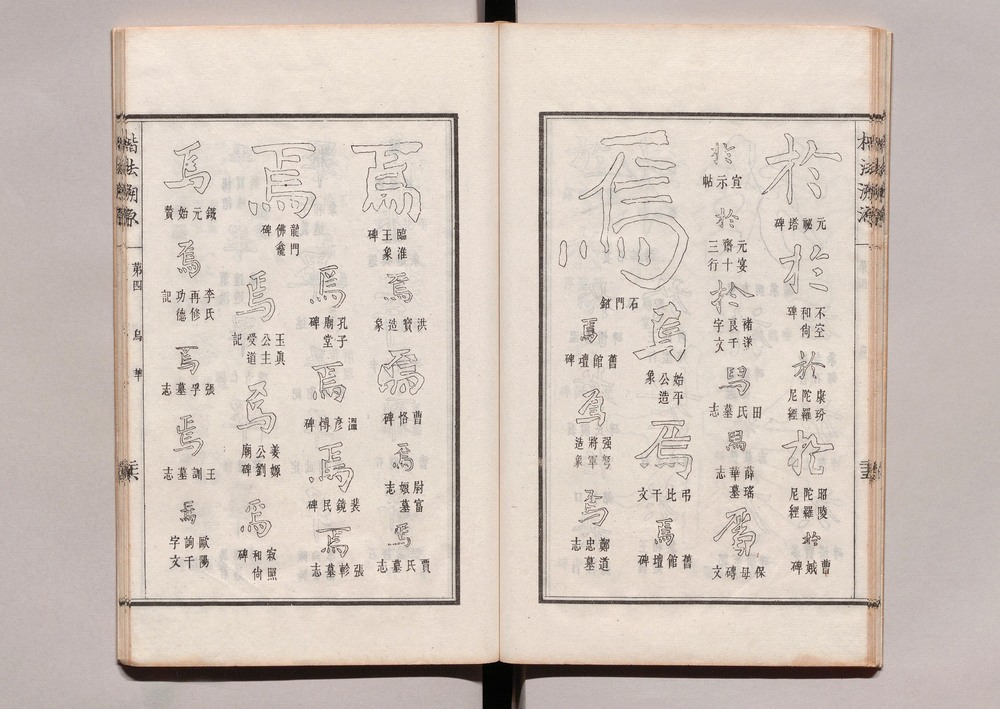 於 元秘塔碑
於 不空和尚碑
於 康玢陀羅尼經
於 昭陵陀羅尼經
於 曹娥碑
於 宣示帖
於 元宴齋十三行
於 褚遂良千字文
焉 田氏墓志
焉 薛瑤華墓志
焉 保母磚文
焉 石門銘
焉 始平公造象
焉 弔比干文
焉 舊館壇碑
焉 舊館壇碑
焉 强弩將軍造象
焉 鄭道忠墓志
楷法溯源
焉 臨淮王象碑
焉 洪寶造象
焉 曹恪碑
焉 尉富娘墓志
焉 賈氏墓志
焉 龍門佛龕碑
焉 孔子廟堂碑
焉 溫彥博碑
焉 裴鏡民碑
焉 張軫墓志
焉 玉眞公主受道記
焉 姜嫄公劉廟碑
焉 寂照和尚碑
焉 鐵元始贊
焉 李氏再修功德記
焉 張孚墓志
焉 王訓墓志
焉 歐陽詢千字文
楷法溯源 第四 烏 華